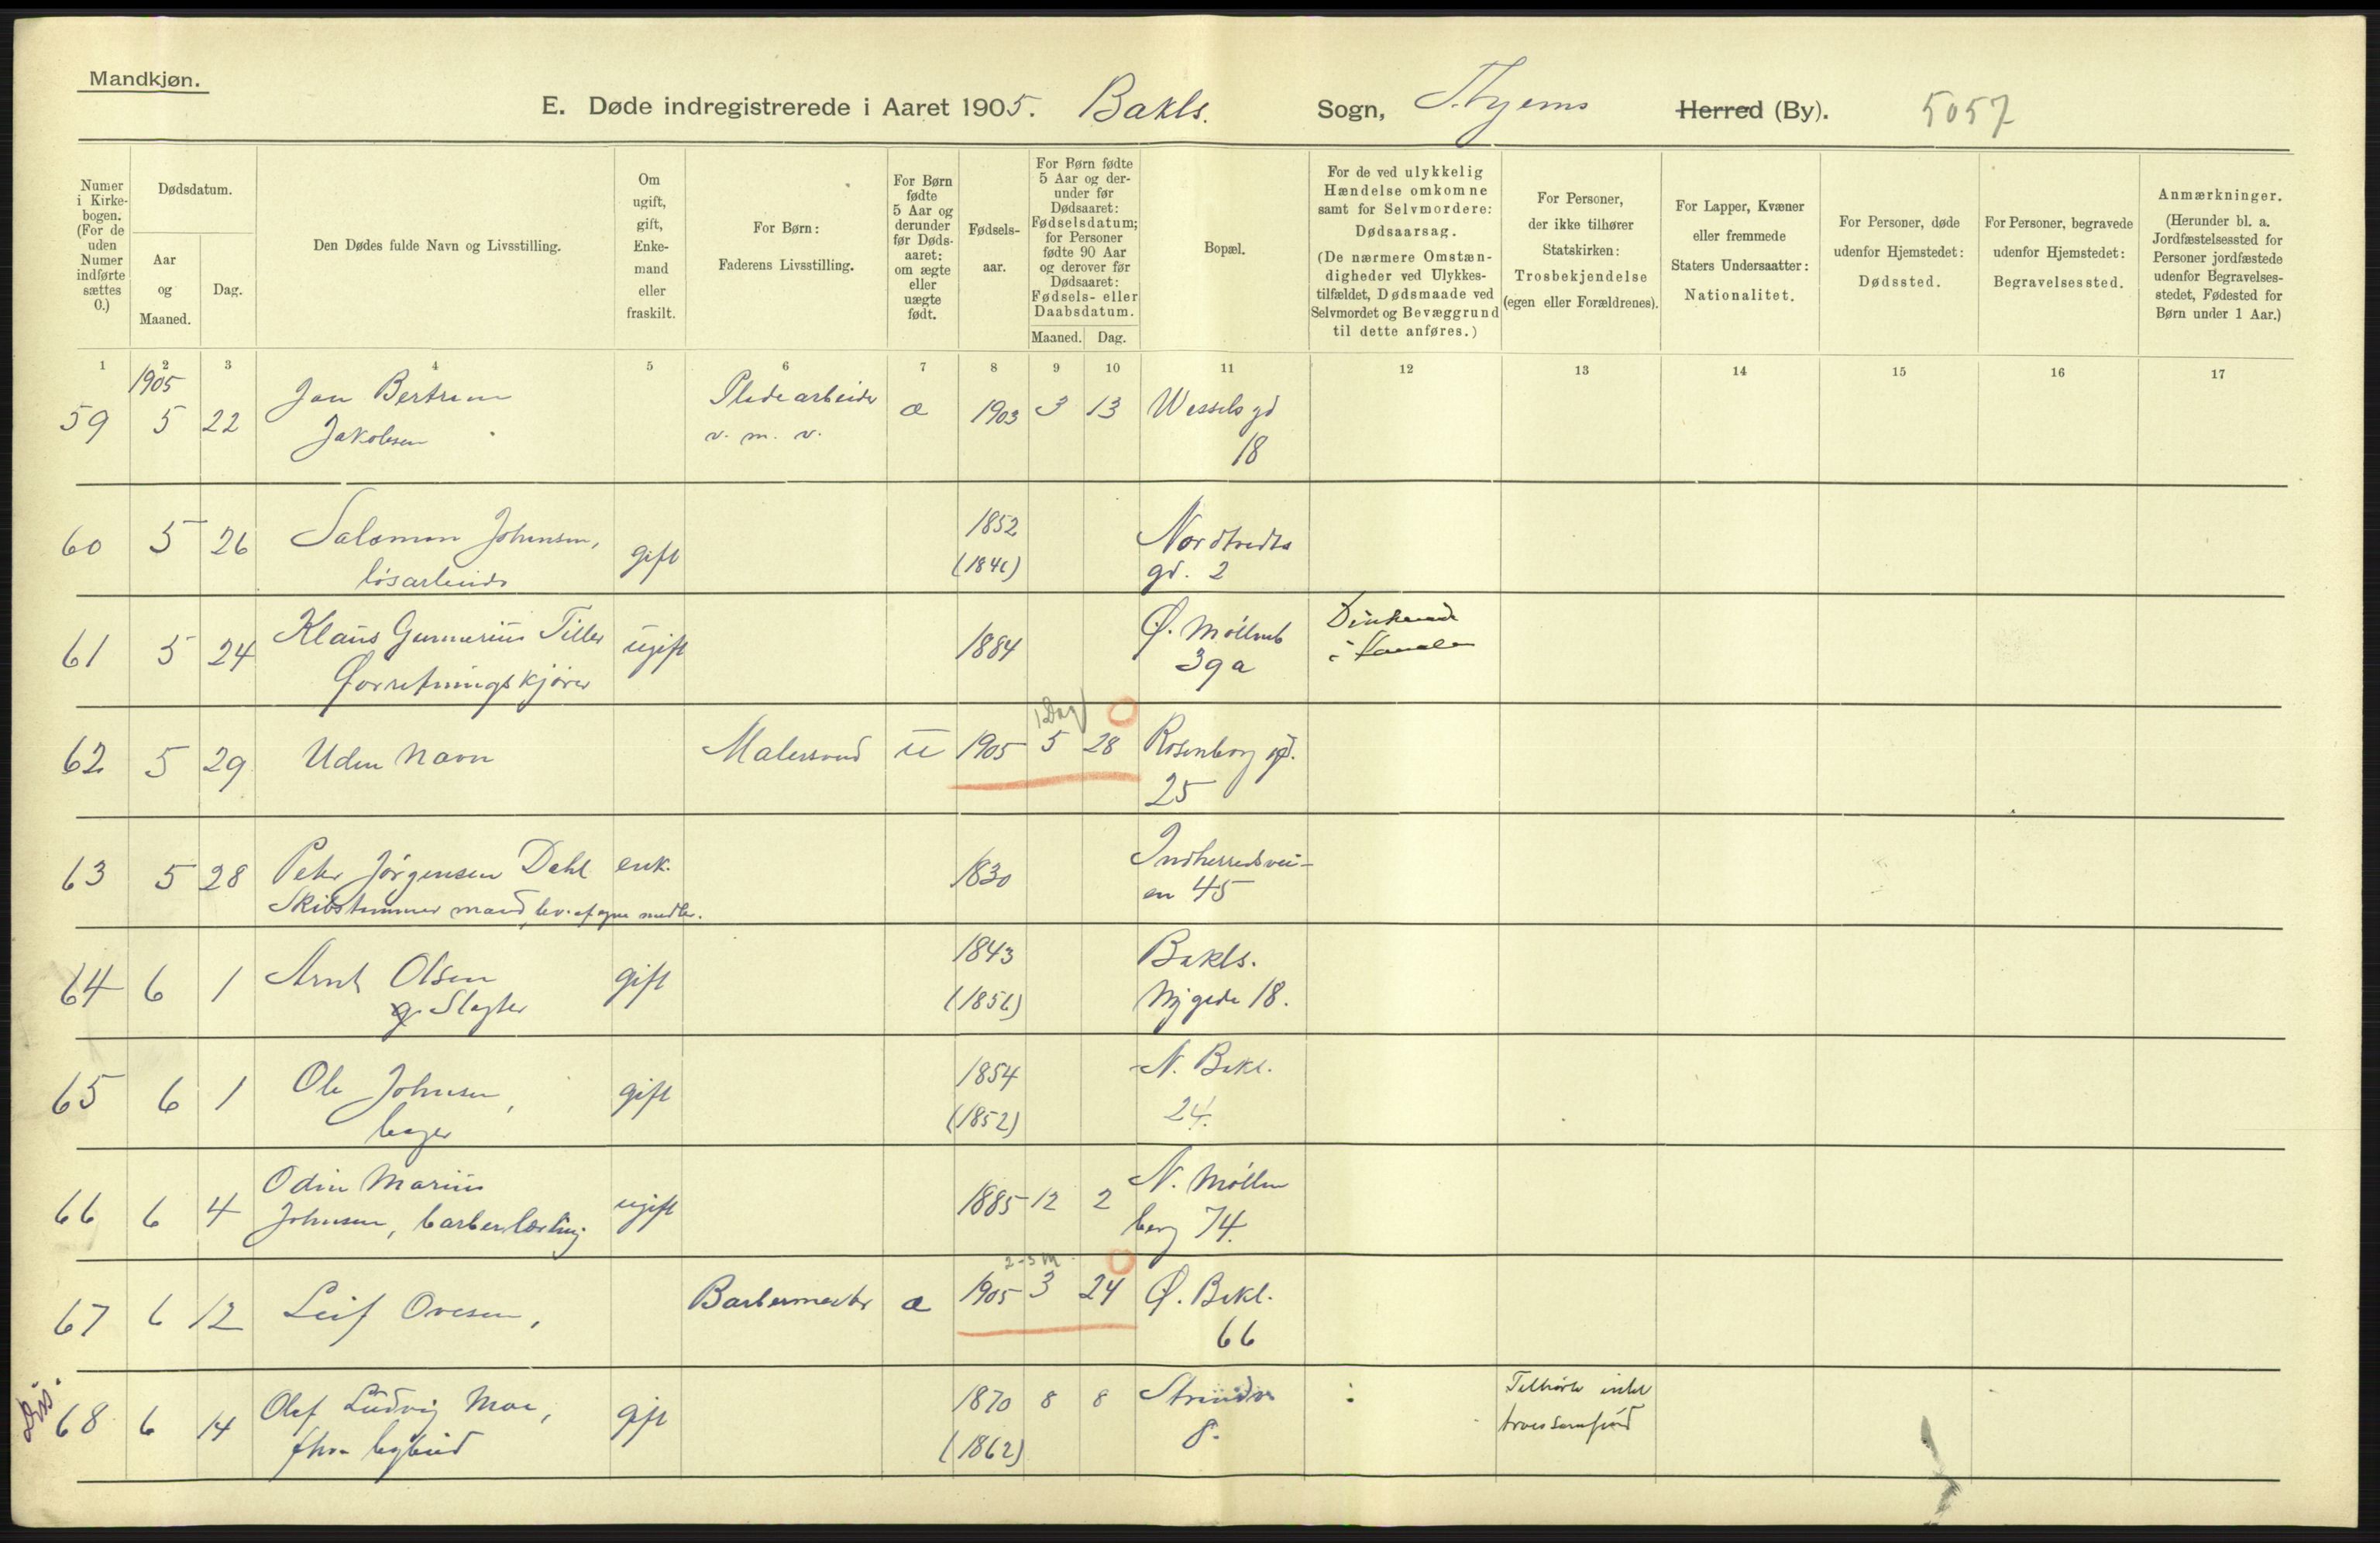 Mandkjøn.
E. Døde indregistrerede i Aaret 1905. Bakls. Sogn, Thjems Herred (By). 5057
Numer i Kirkebogen. (For de uden Numer indførte sættes 0.)
Dødsdatum.
Aar og Maaned.
Dag.
Den Dødes fulde Navn og Livsstilling.
Om ugift, gift, Enkemand eller fraskilt.
For Børn: Faderens Livsstilling.
For Børn fødte 5 Aar og derunder før Dødsaaret: om ægte eller uægte født.
Fødselsaar.
For Børn fødte 5 Aar og derunder før Dødsaaret: Fødselsdatum; for Personer fødte 90 Aar og derover før Dødsaaret: Fødsels- eller Daabsdatum.
Maaned. Dag.
Bopæl.
For de ved ulykkelig Hændelse omkomne samt for Selvmordere: Dødsaarsag.
(De nærmere Omstændigheder ved Ulykkestilfældet, Dødsmaade ved Selvmordet og Bevæggrund til dette anføres.)
For Personer, der ikke tilhører Statskirken: Trosbekjendelse (egen eller Forældrenes).
For Lapper, Kvæner eller fremmede Staters Undersaatter: Nationalitet.
For Personer, døde udenfor Hjemstedet: Dødssted.
For Personer, begravede udenfor Hjemstedet: Begravelsessted.
Anmærkninger.
(Herunder bl. a. Jordfæstelsessted for Personer jordfæstede udenfor Begravelsesstedet, Fødested for Børn under 1 Aar.)
1 2 3 4 5 6 7 8 9 10 11 12 13 14 15 16 17
1905
59 5 22 Jon Bertram Jakobsen v. m. v. æ 1903 3 13 Wessels gd 18
60 5 26 Salomon Johnsen, løsarbeider gift 1852 (1846) gd. 2
61 5 24 Klaus Gunnerius Tiller Forretningskjører ugift 1884 Ø. Møllenb 39a i Kanalen
62 5 29 Uden Navn Malersvend u 1905 5 28 (1 Dag) Rosenborg gd. 25
63 5 28 Peter Jørgensen Dahl Skibstømmermand, lev. af egne midler. enk. 1830 Indherredsveien 45
64 6 1 Arnt Olsen Slagter gift 1843 (1856) Bakls. Nygade 18.
65 6 1 Ole Johnsen, bager gift 1854 (1852) N. Bakl. 24.
66 6 4 Odin Marius Johnsen, barberlærling ugift 1885 12 2 N. Møllenberg 74.
67 6 12 Leif Ovesen, Barbermester æ 1905 3 24 2-3 M Ø. Bakl. 66
Dis. 68 6 14 Olaf Ludvig Moe, fhv. bybud gift 1870 (1862) 8 8 Strindv 8. Tilhørte intet troessamfund